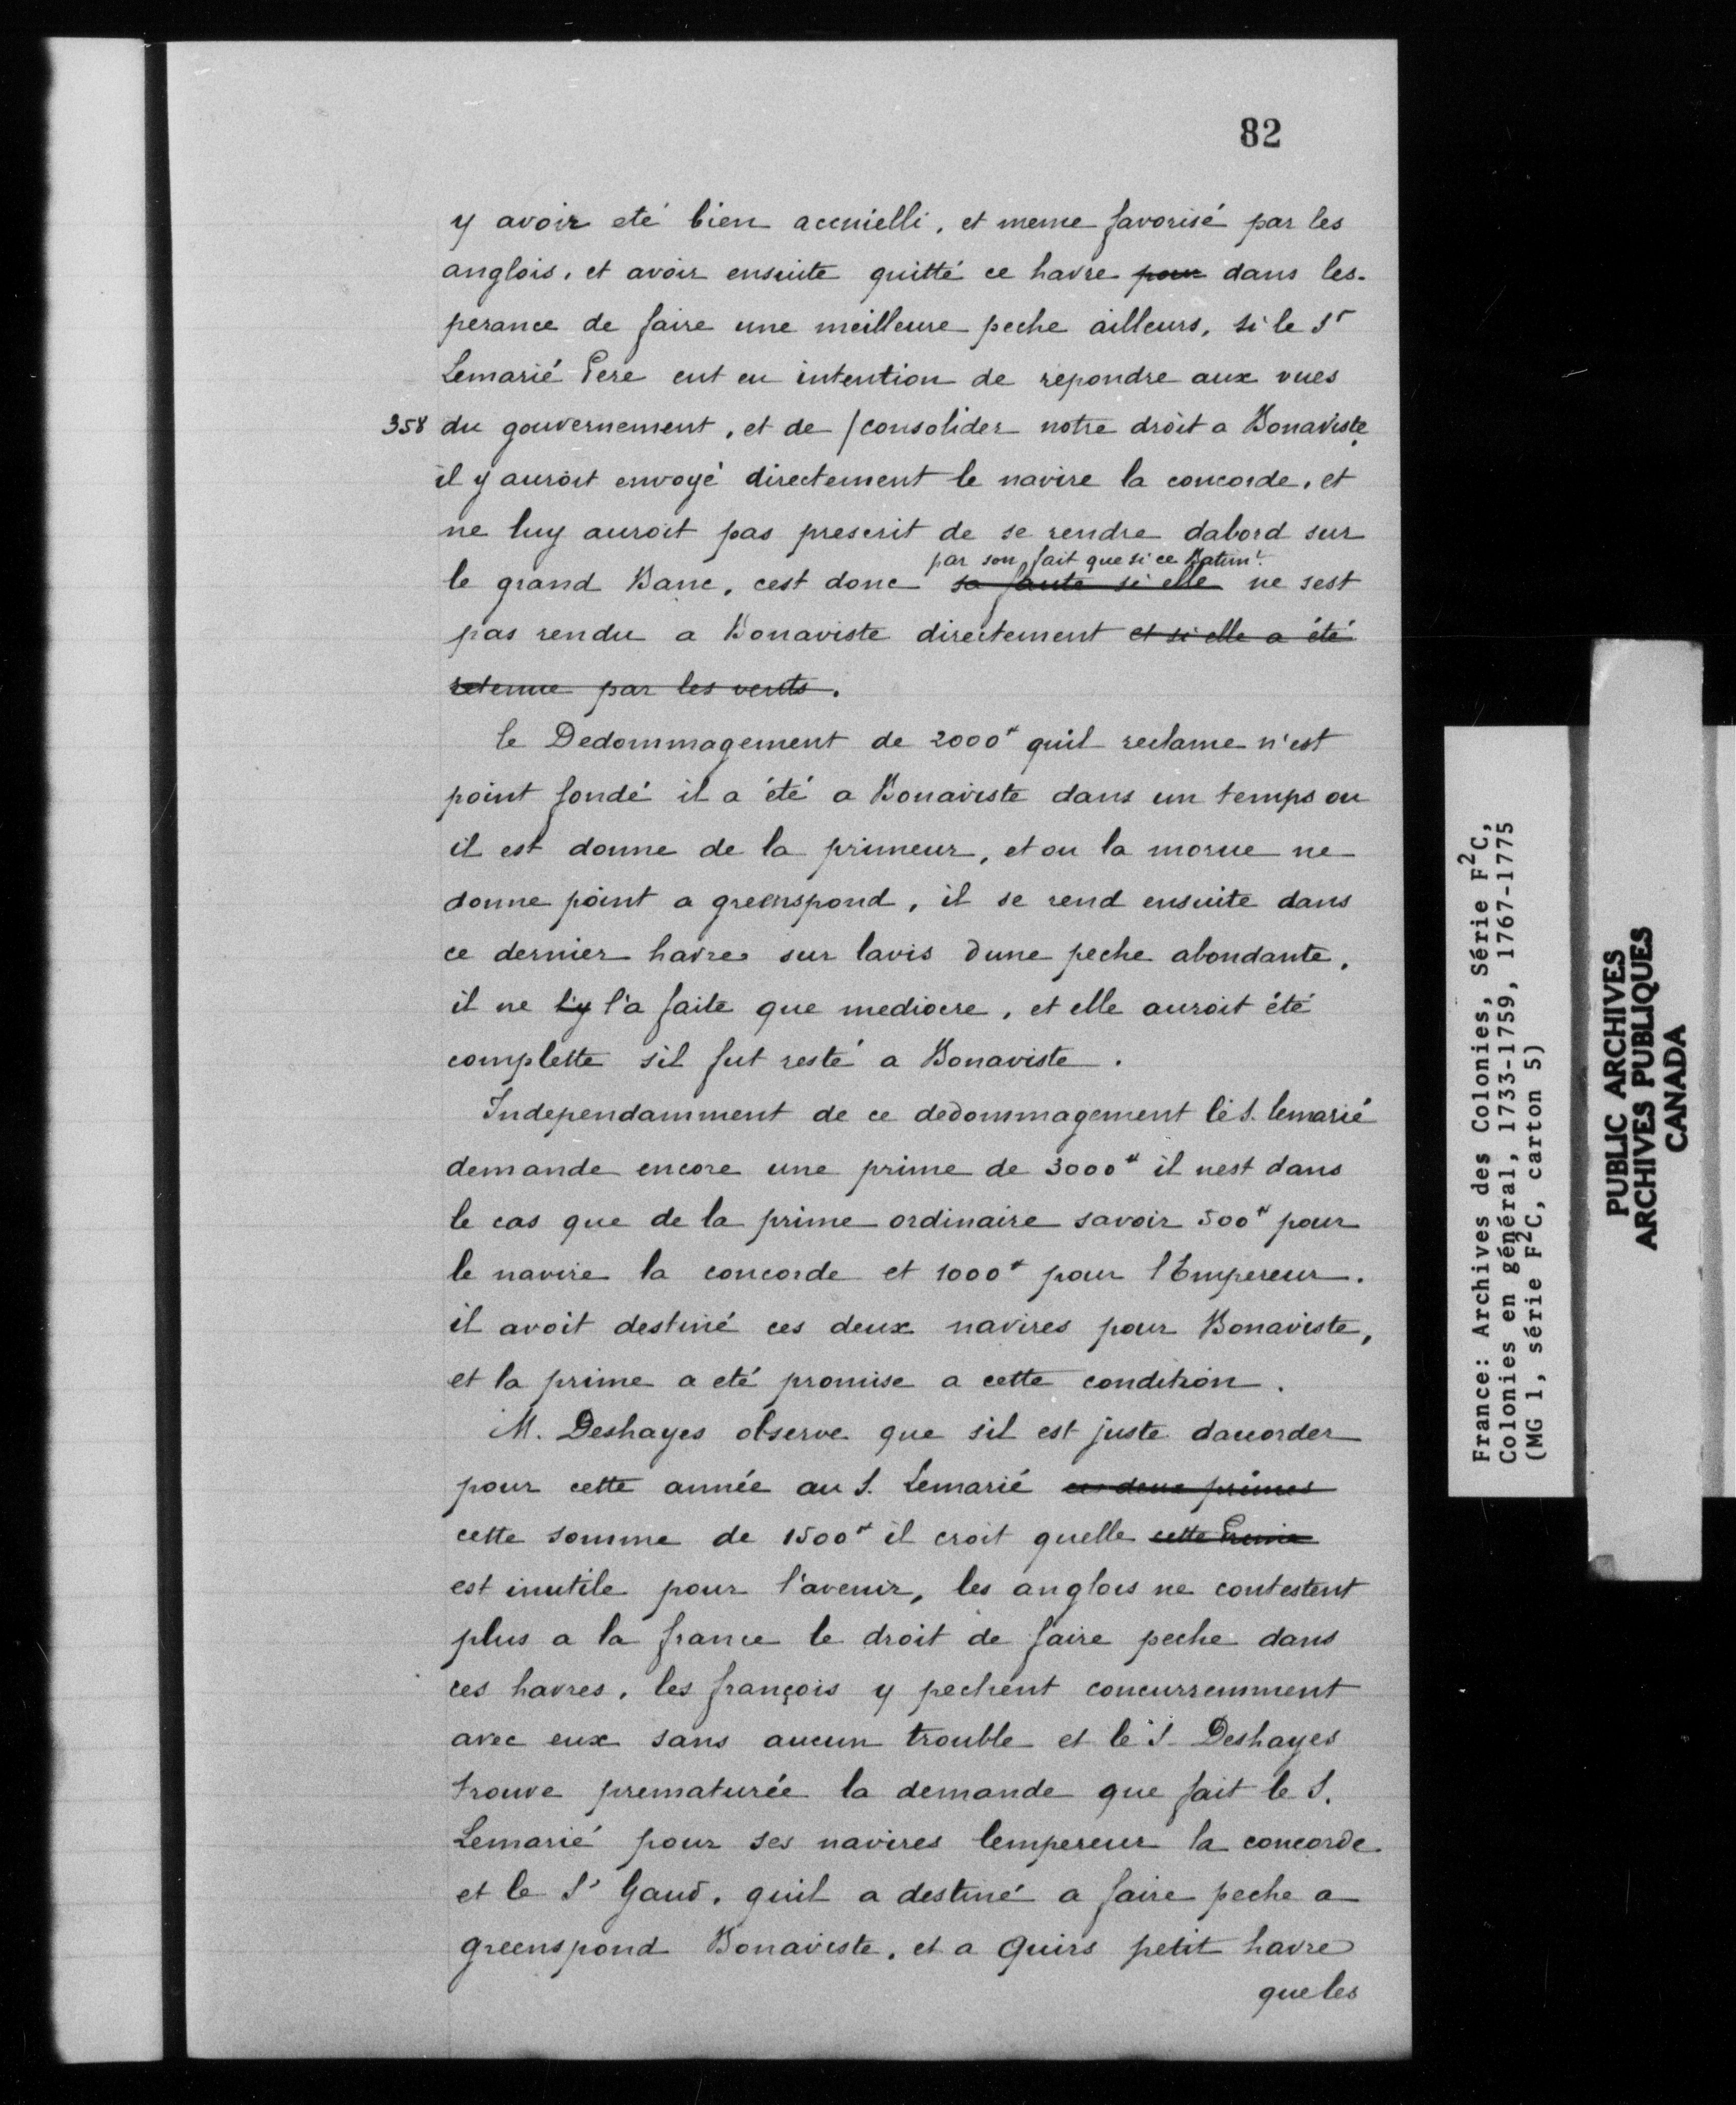 82
y avoir eté bien accuielli, et meme favorisé par les
anglois, et avoir ensuite quitté ce havre pour dans les-
perance de faire une meilleure peche ailleurs, si le Sr
Lemarié Pere eut eu intention de repondre aux vues
358 du gouvernement, et de /consolider notre droit a Bonaviste,
il y auroit envoyé directement le navire la concorde, et
ne luy auroit pas prescrit de se rendre dabord sur
par son fait que si ce Batimt
le grand Banc, cest donc sa faute si elle ne sest
pas rendu a Bonaviste directement et si elle a été
retenue par les vents.
le Dedommagement de 2000# quil reclame n'est
point fondé il a été a Bonaviste dans un temps ou
il est donne de la primeur, et ou la morue ne
donne point a greenspond, il se rend ensuite dans
ce dernier havre sur lavis dune peche abondante,
il ne l'y l'a faite que mediocre, et elle auroit été
complette sil fut resté a Bonaviste.
Independamment de ce dedommagement le S. lemarié
demande encore une prime de 3000# il nest dans
le cas que de la prime ordinaire savoir 500# pour
le navire la concorde et 1000# pour l'Empereur.
il avoit destiné ces deux navires pour Bonaviste,
et la prime a eté promise a cette condition.
M. Deshayes observe que sil est juste daccorder
pour cette année au S. Lemarié ces deux primes
cette somme de 1500# il croit quelle cette Prime
est inutile pour l'avenir, les anglois ne contestent
plus a la france le droit de faire peche dans
ces havres, les françois y pechent concurremment
avec eux sans aucun trouble et le S. Deshayes
trouve prematurée la demande que fait le S.
Lemarié pour ses navires lempereur la concorde
et le St Gaud, quil a destiné a faire peche a
greenspond Bonaviste, et a Quirs petit havre
que les
France: Archives des Colonies, Série F2C,
Colonies en général, 1733-1759, 1767-1775
(MG 1, série F2C, carton 5)
PUBLIC ARCHIVES
ARCHIVES PUBLIQUES
CANADA